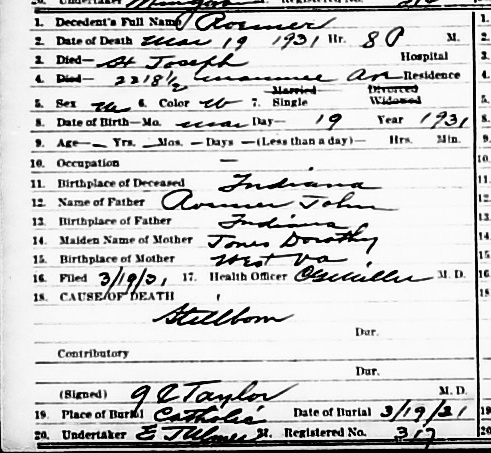 1. Decedent's Full Name Roemer
2. Date of Death Mar 19 1931 Hr. 8 P M.
3. Died— St Joseph Hospital
4. Died— 2218½ Maumee Ave Residence
Married Divorced
5. Sex M 6. Color W 7. Single Widowed
8. Date of Birth—Mo. Mar Day— 19 Year 1931
9. Age— — Yrs. — Mos. — Days — (Less than a day)— Hrs. Min.
10. Occupation —
11. Birthplace of Deceased Indiana
12. Name of Father Roemer John
13. Birthplace of Father Indiana
14. Maiden Name of Mother Jones Dorothy
15. Birthplace of Mother West Va
16. Filed 3/19/31 17. Health Officer Miller M. D.
18. CAUSE OF DEATH
Stillborn
Dur.
Contributory
Dur.
(Signed) J C Taylor M. D.
19. Place of Burial Catholic Date of Burial 3/19/31
20. Undertaker Registered No. 317